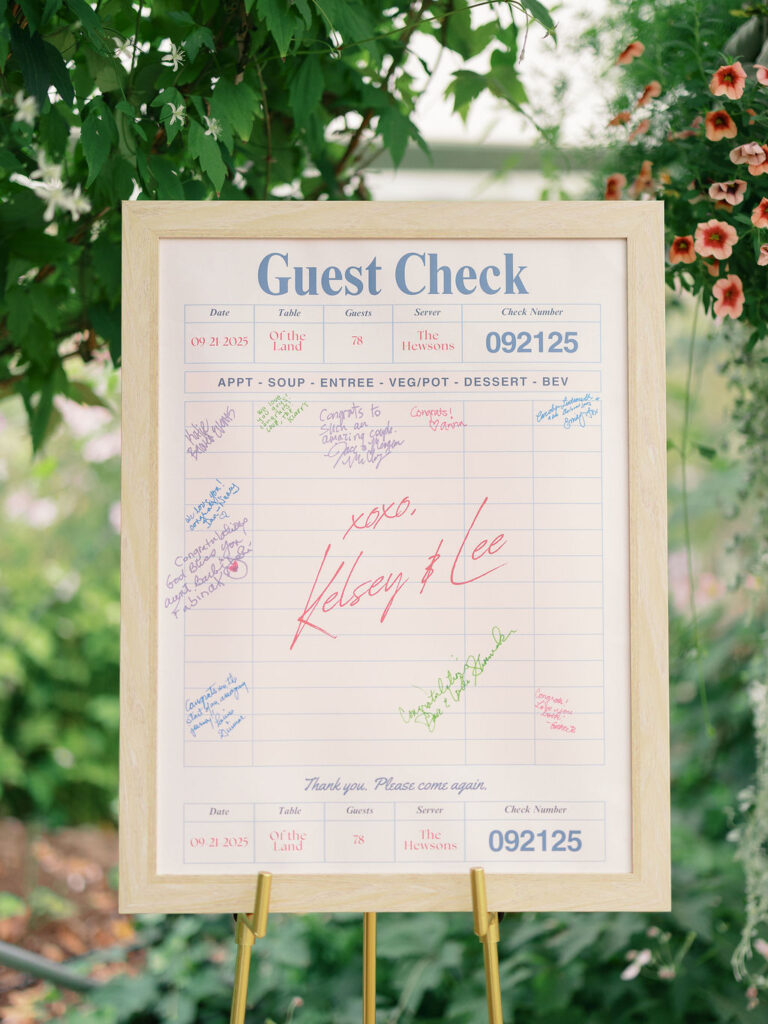 Guest Check
Date Table Guests Server Check Number
09-21-2025 Of the Land 78 The Hewsons 092125
APPT - SOUP - ENTREE - VEG/POT - DESSERT - BEV
Katie
We love
Congrats to
such an
amazing couple.
Congrats!
♡ anna
We love you!
Congratulations
God Bless You
aunt Barb
xoxo,
Kelsey & Lee
Congratulations
Congrats on the
start of an amazing
Congrats!
Love you
both
Thank you. Please come again.
Date Table Guests Server Check Number
09-21-2025 Of the Land 78 The Hewsons 092125